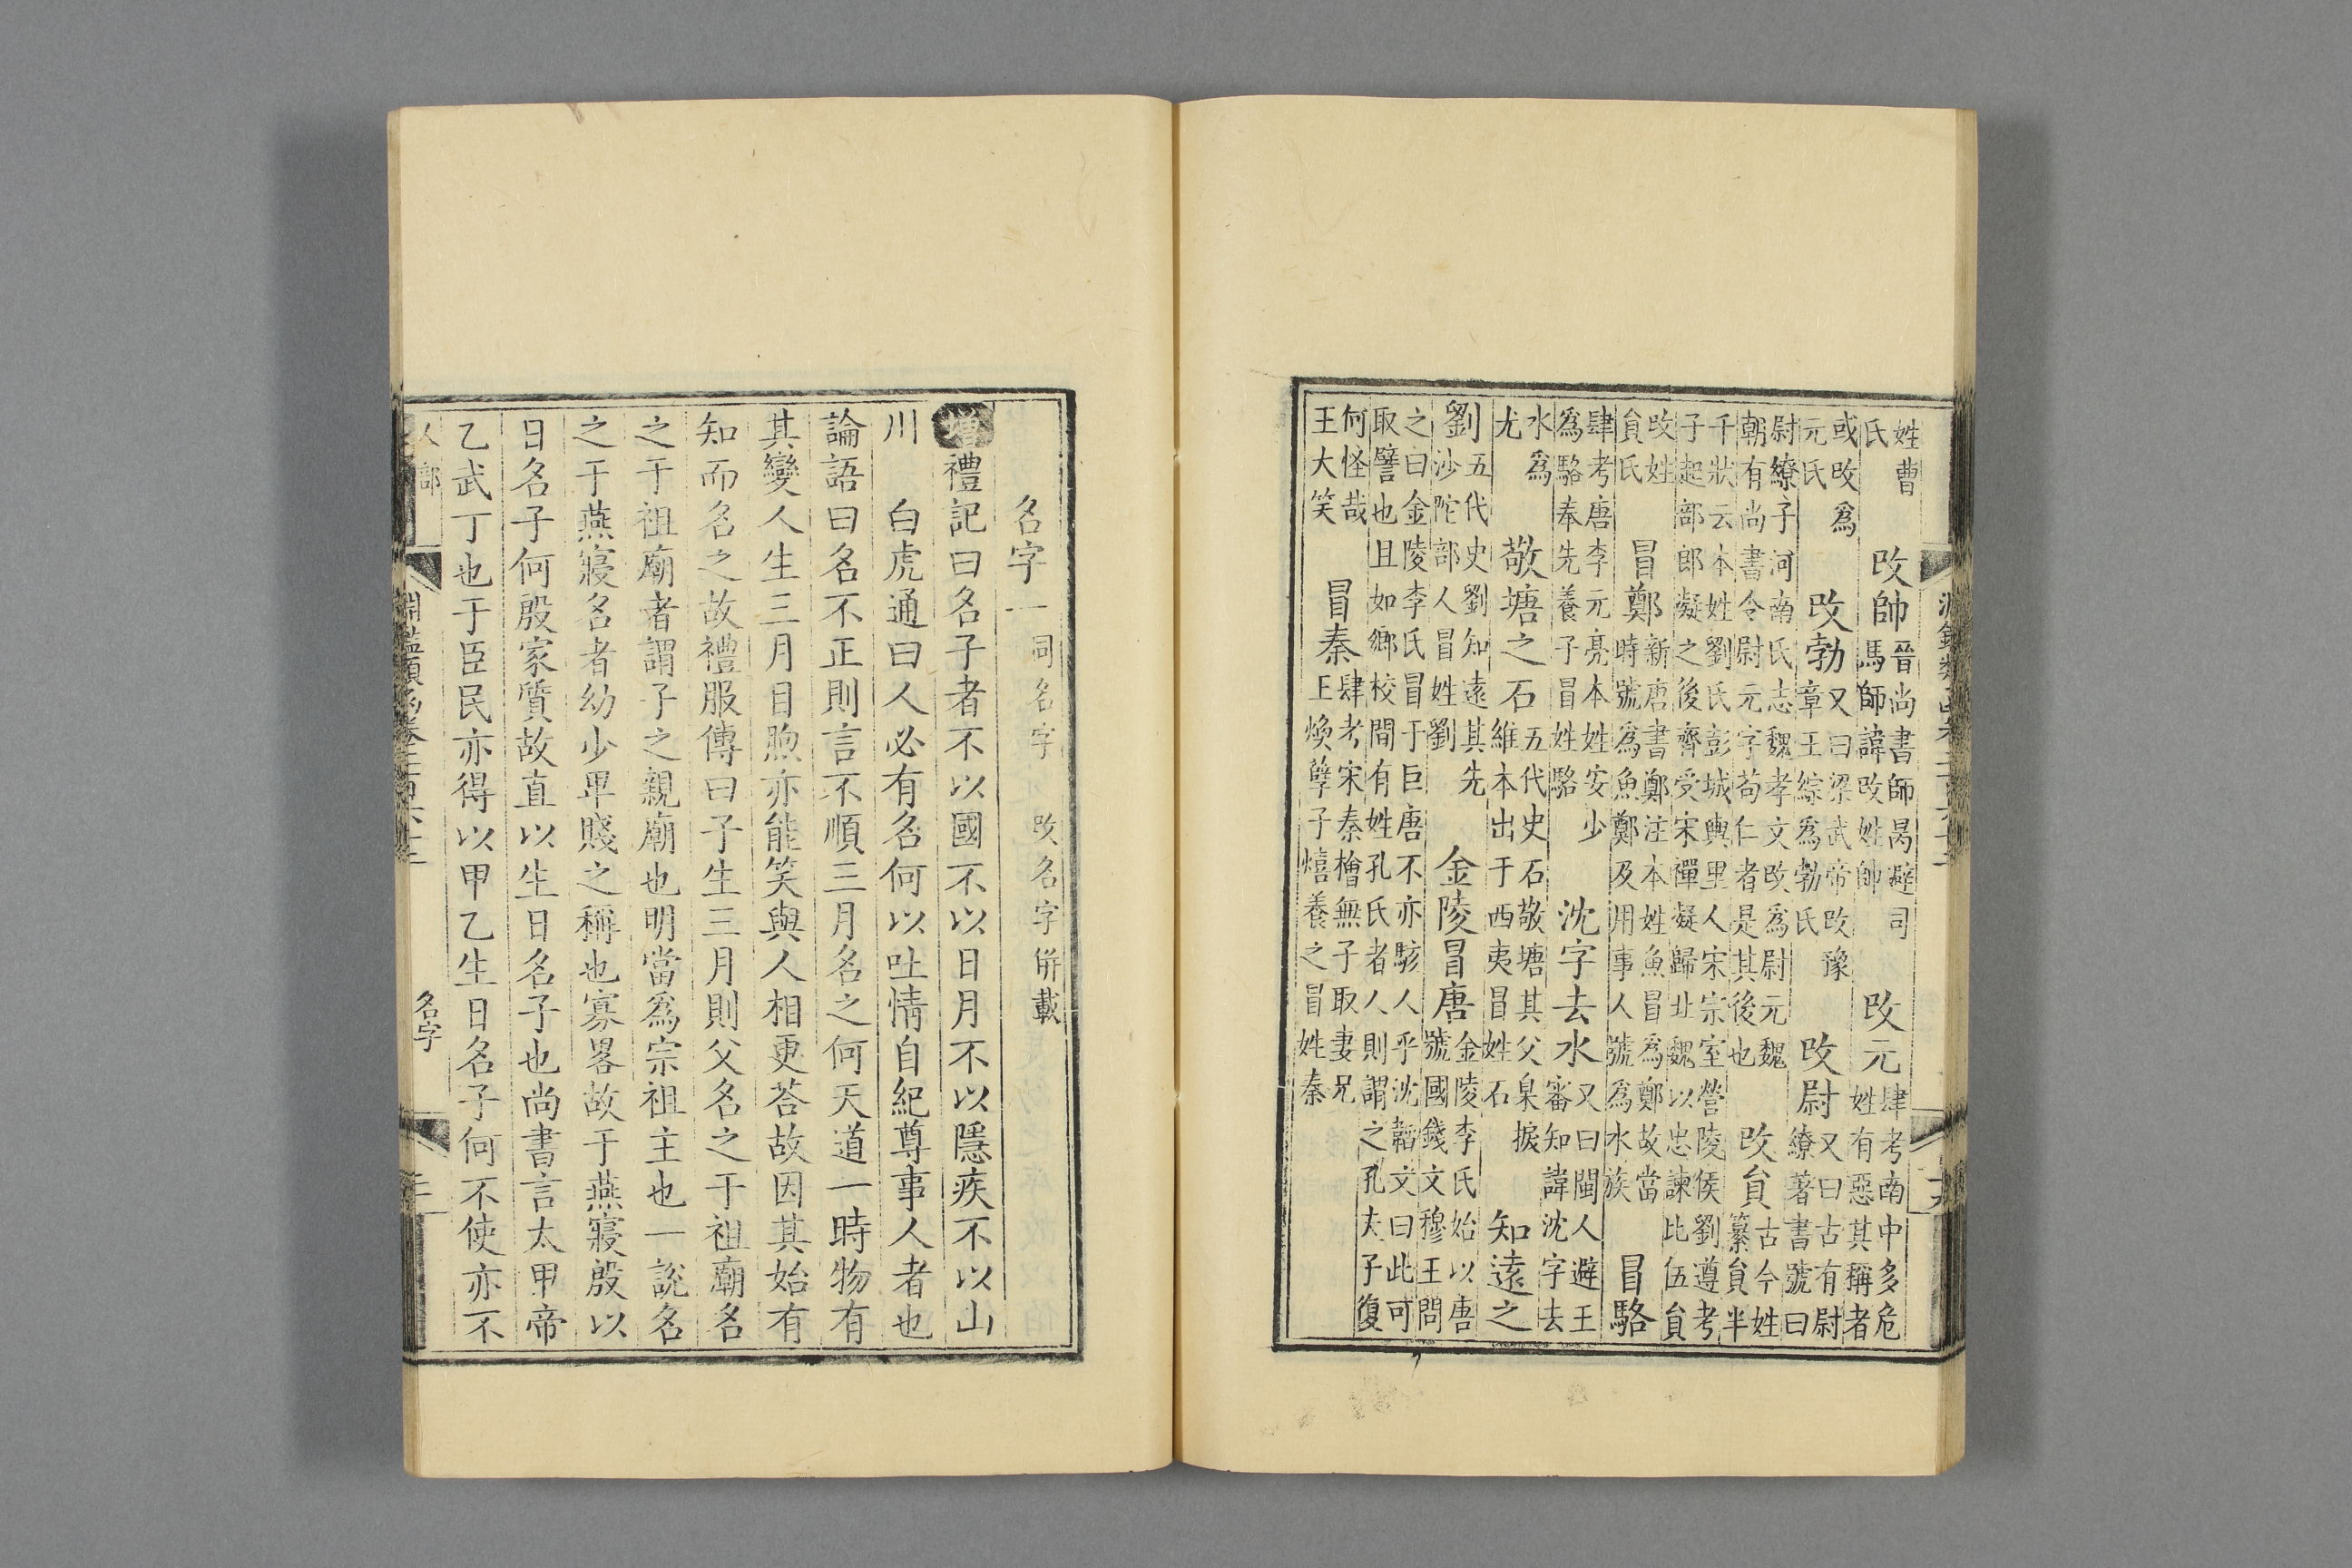 姓曹氏 改帥 晉尚書師昺避司馬師諱改姓帥 改元 肆考南中多危姓有惡其稱者
或改爲元氏 改勃 又曰梁武帝改豫章王綜爲勃氏 改尉 又曰古有尉繚著書號曰
尉繚子河南氏志魏孝文改爲尉元魏朝有尚書令尉元字苟仁者是其後也 改貟 古今姓纂貟半
千狀云本姓劉氏彭城輿里人宋宗室營陵侯劉遵考子起部郎凝之後齊受宋禪凝歸北魏以忠諫比伍貟
改姓貟氏 冒鄭 新唐書鄭注本姓魚冒爲鄭故當時號爲魚鄭及用事人號爲水族 冒駱
肆考唐李元亮本姓安少爲駱奉先養子冒姓駱 沈字去水 又曰閩人避王審知諱沈字去
水爲尤 敬塘之石 五代史石敬塘其父臬捩維本出于西夷冒姓石 知遠之
劉 五代史劉知遠其先沙陀部人冒姓劉 金陵冒唐 金陵李氏始以唐號國錢文穆王問
之曰金陵李氏冒于巨唐不亦駭人乎沈韜文曰此可取譬也且如鄉校間有姓孔氏者人則謂之孔夫子復
何怪哉王大笑 冒秦 肆考宋秦檜無子取妻兄王煥孽子熺養之冒姓秦
名字一 同名字 改名字併載
增禮記曰名子者不以國不以日月不以隱疾不以山
川 白虎通曰人必有名何以吐情自紀尊事人者也
論語曰名不正則言不順三月名之何天道一時物有
其變人生三月目煦亦能笑與人相更荅故因其始有
知而名之故禮服傳曰子生三月則父名之于祖廟名
之于祖廟者謂子之親廟也明當爲宗祖主也一說名
之于燕寢名者幼少卑賤之稱也寡畧故于燕寢殷以
日名子何殷家質故直以生日名子也尚書言太甲帝
乙武丁也于臣民亦得以甲乙生日名子何不使亦不
人部 淵鑑類函卷 名字